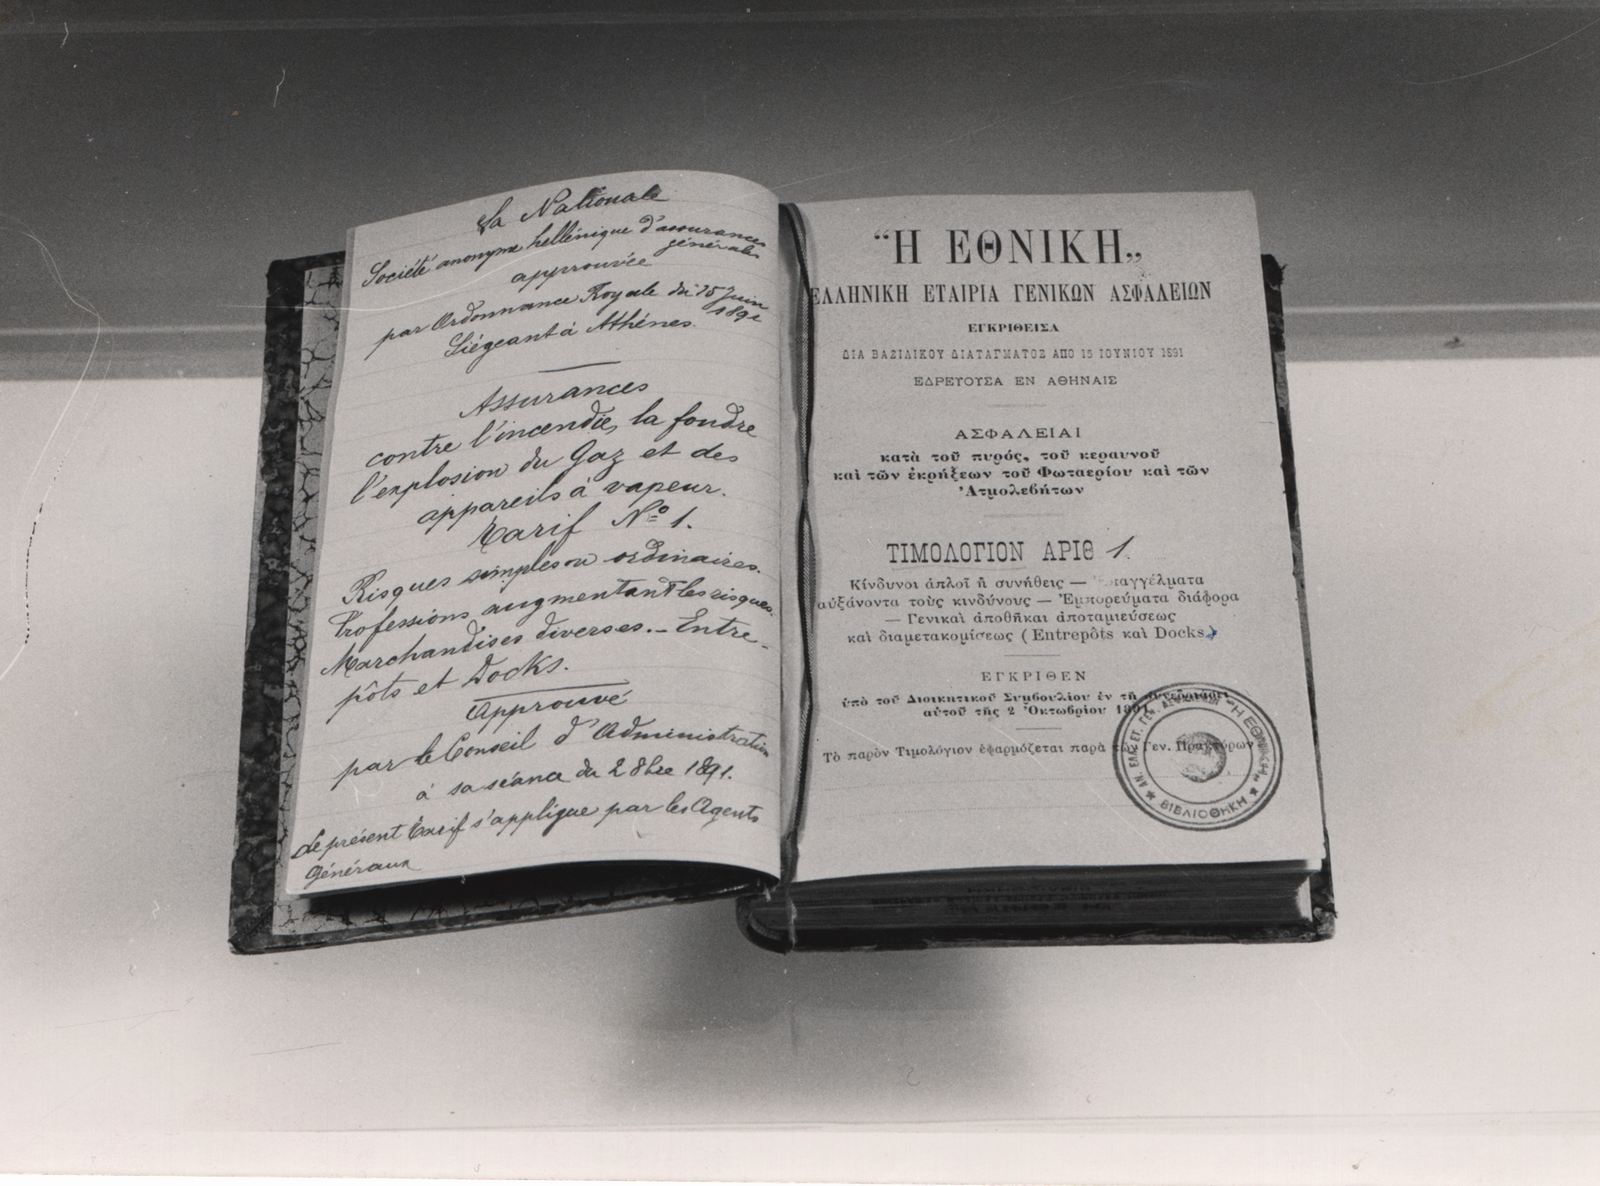 La Nationale
Société anonyme hellénique d'assurances
générales
approuvée
par Ordonnance Royale du 15 Juin
1891
Siégeant à Athénes.
Assurances
contre l'incendie, la foudre
l'explosion du Gaz et des
appareils à vapeur.
Tarif Nº 1.
Risques simples ou ordinaires.
Professions augmentant les risques.
Marchandises diverses. – Entre-
pôts et Docks.
Approuvé
par le Conseil d'Administration
à sa séance du 2 8bre 1891.
Le présent Tarif s'applique par les Agents
Généraux
“Η ΕΘΝΙΚΗ„
ΕΛΛΗΝΙΚΗ ΕΤΑΙΡΙΑ ΓΕΝΙΚΩΝ ΑΣΦΑΛΕΙΩΝ
ΕΓΚΡΙΘΕΙΣΑ
ΔΙΑ ΒΑΣΙΛΙΚΟΥ ΔΙΑΤΑΓΜΑΤΟΣ ΑΠΟ 15 ΙΟΥΝΙΟΥ 1891
ΕΔΡΕΥΟΥΣΑ ΕΝ ΑΘΗΝΑΙΣ
ΑΣΦΑΛΕΙΑΙ
κατὰ τοῦ πυρός, τοῦ κεραυνοῦ
καὶ τῶν ἐκρήξεων τοῦ Φωταερίου καὶ τῶν
Ἀτμολεβήτων
ΤΙΜΟΛΟΓΙΟΝ ΑΡΙΘ 1.
Κίνδυνοι ἁπλοῖ ἢ συνήθεις — Ἐπαγγέλματα
αὐξάνοντα τοὺς κινδύνους — Ἐμπορεύματα διάφορα
— Γενικαὶ ἀποθῆκαι ἀποταμιεύσεως
καὶ διαμετακομίσεως (Entrepôts καὶ Docks)
ΕΓΚΡΙΘΕΝ
ὑπὸ τοῦ Διοικητικοῦ Συμβουλίου ἐν τῇ συνεδριάσει
αὐτοῦ τῆς 2 Ὀκτωβρίου 1891
Τὸ παρὸν Τιμολόγιον ἐφαρμόζεται παρὰ τῶν Γεν. Πρακτόρων
ΑΝ. ΕΛΛ. ΕΤ. ΓΕΝ. ΑΣΦΑΛΕΙΩΝ "Η ΕΘΝΙΚΗ„
★ ΒΙΒΛΙΟΘΗΚΗ ★